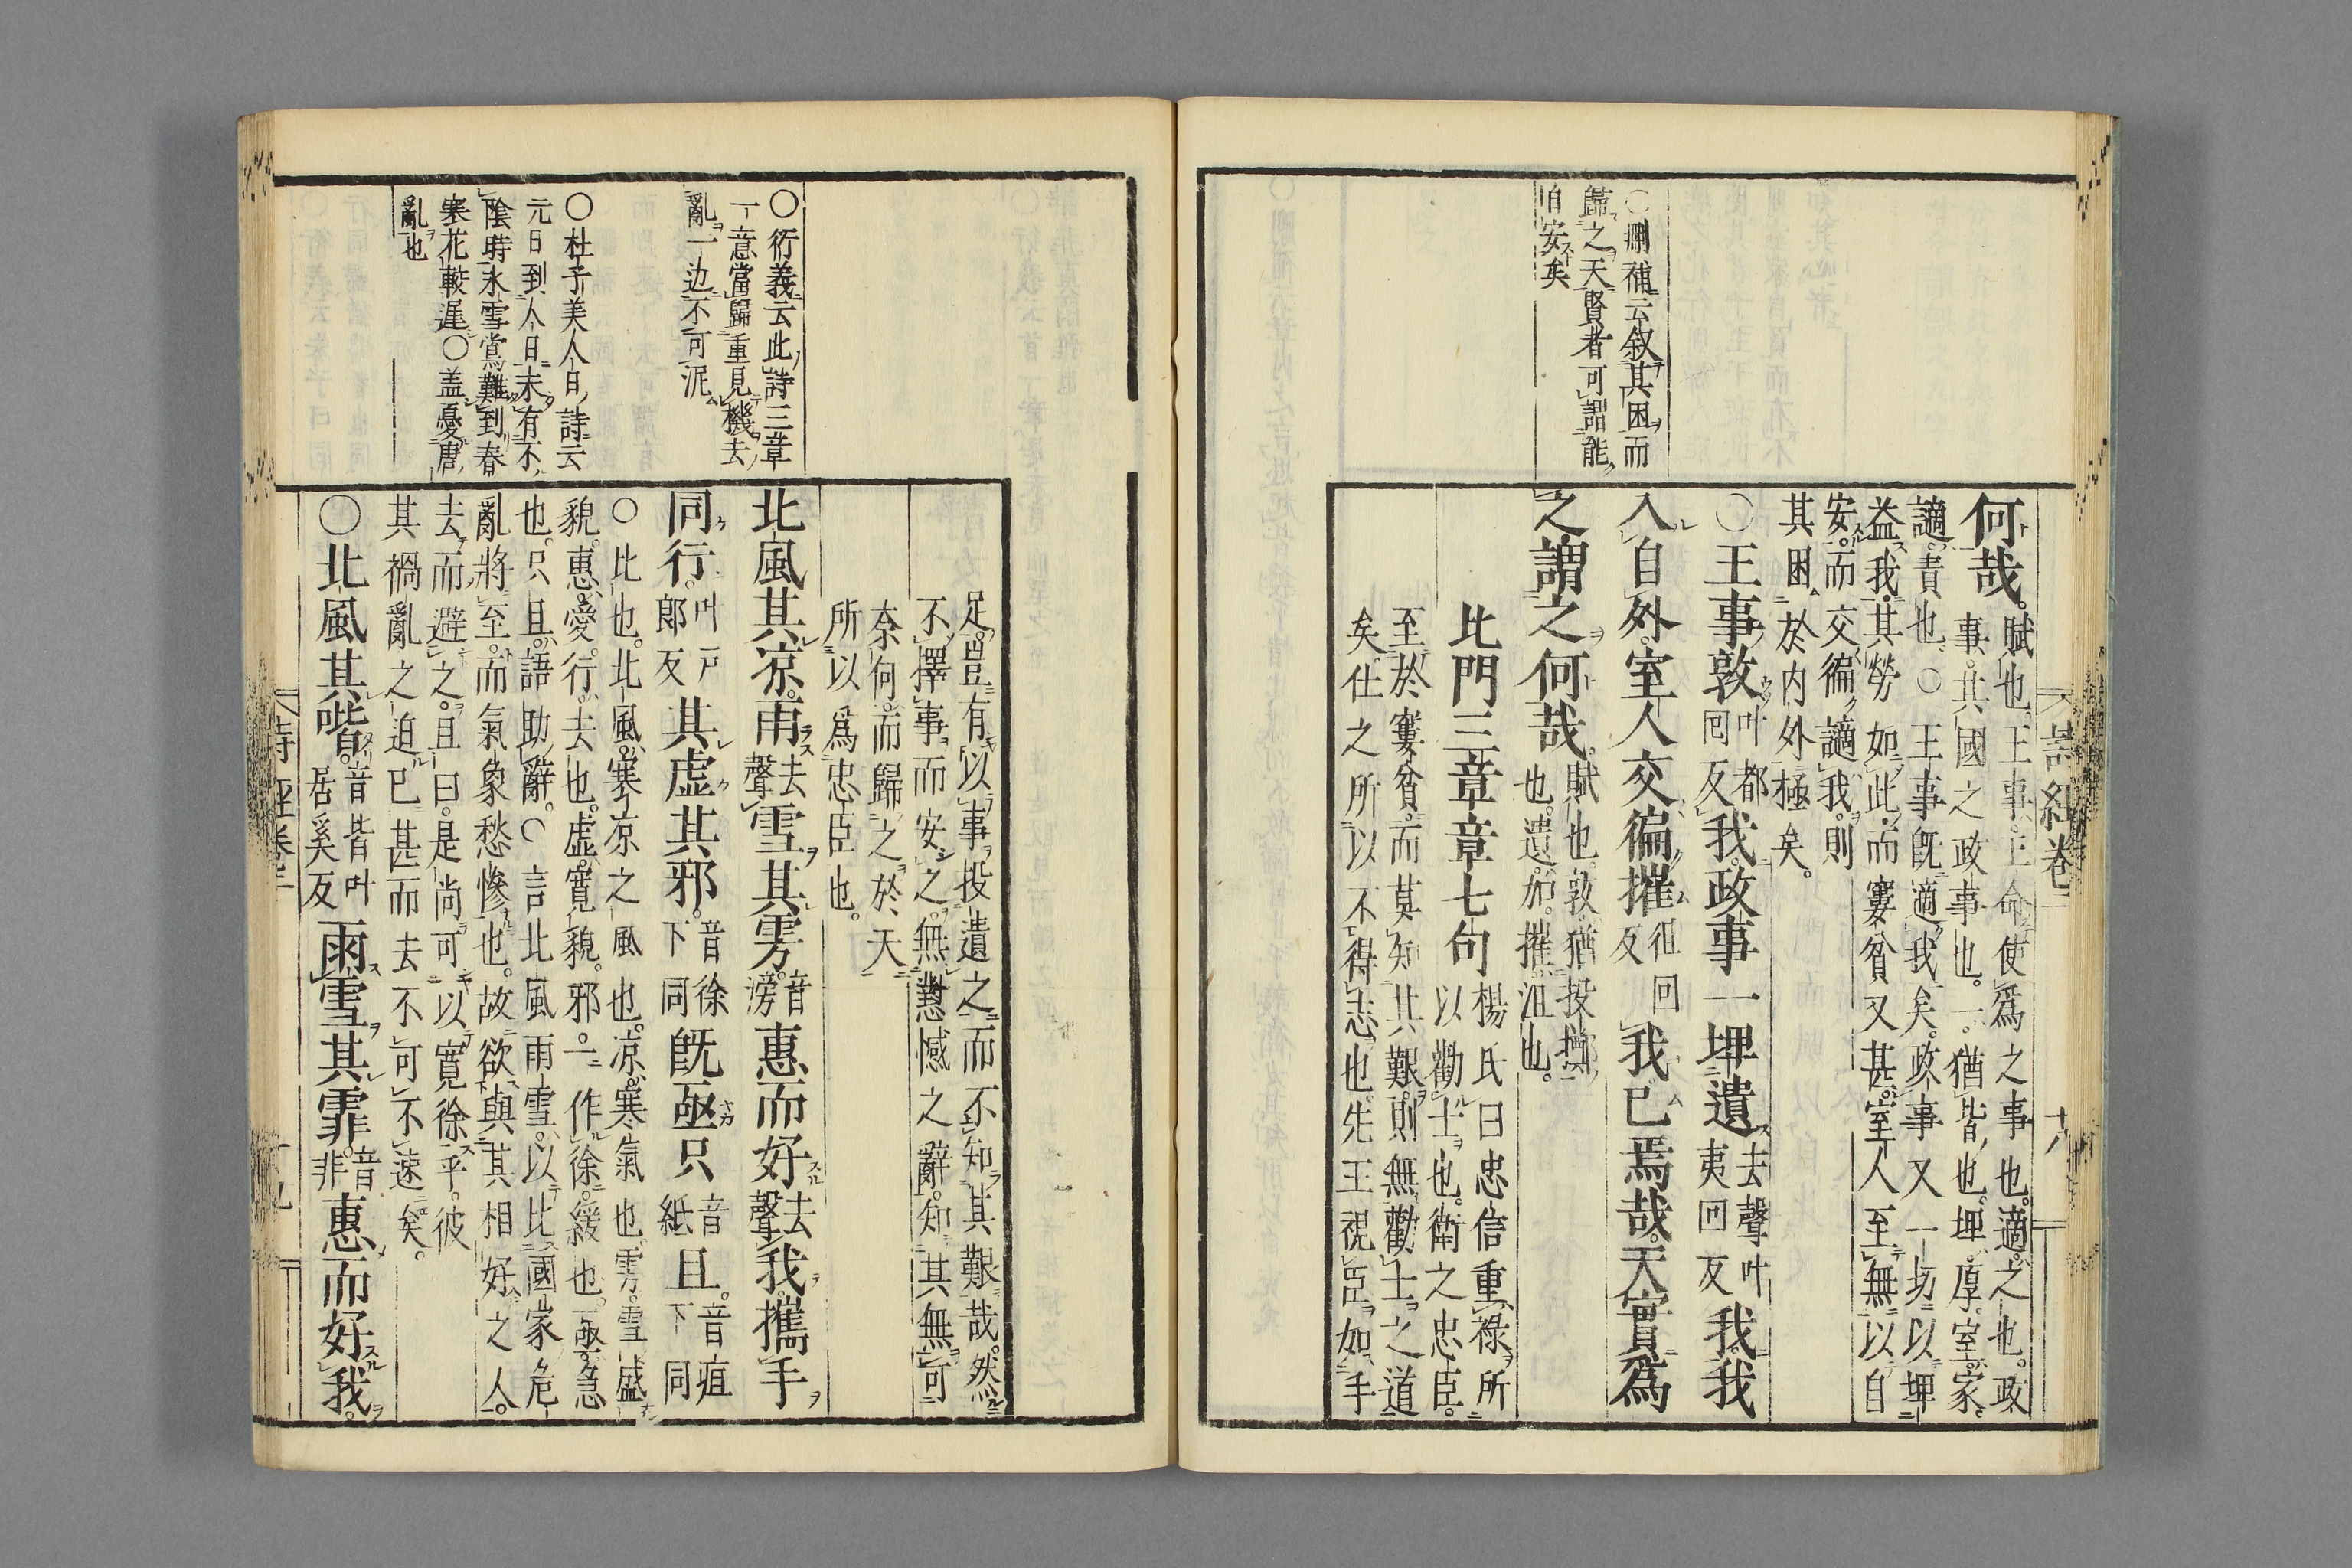 詩經卷二
十八
○刪補云敘其困而
歸之天賢者可謂能
自安矣
何哉賦也王事王命使爲之事也適之也政
事其國之政事也一猶皆也埤厚室家
讁責也○王事既適我矣政事又一切以埤
益我其勞如此而窶貧又甚室人至無以自
安而交徧讁我則
其困於内外極矣
○王事敦叶都
回反我政事一埤遺去聲叶
夷回反我我
入自外室人交徧摧徂回
反我已焉哉天實爲
之謂之何哉賦也敦猶投擲
也遺加摧沮也
北門三章章七句楊氏曰忠信重祿所
以勸士也衛之忠臣
至於窶貧而莫知其艱則無勸士之道
矣仕之所以不得志也先王視臣如手
足豈有以事投遺之而不知其艱哉然
不擇事而安之無懟憾之辭知其無可
奈何而歸之於天
所以爲忠臣也
○衍義云此詩三章
一意當歸重見機去
亂一边不可泥
○杜子美人日詩云
元日到人日未有不
陰時氷雪鴬難到春
寒花較遲○盖憂唐
亂也
北風其凉雨去
聲雪其雱音
滂惠而好去
聲我攜手
同行叶戸
郎反其虚其邪音徐
下同既亟只音
紙且音疽
下同
○比也北風寒凉之風也凉寒氣也雱雪盛
貌惠愛行去也虚寛貌邪一作徐緩也亟急
也只且語助辭○言北風雨雪以比國家危
亂將至而氣象愁慘也故欲與其相好之人
去而避之且曰是尚可以寛徐乎彼
其禍亂之迫已甚而去不可不速矣
○北風其喈音皆叶
居奚反雨雪其霏音
非惠而好我
詩經卷二
十九